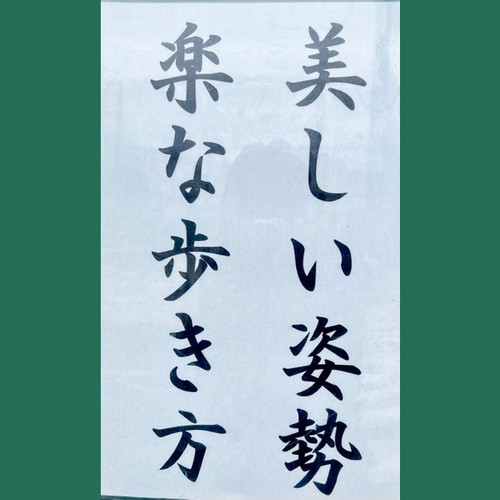 美しい姿勢
楽な歩き方